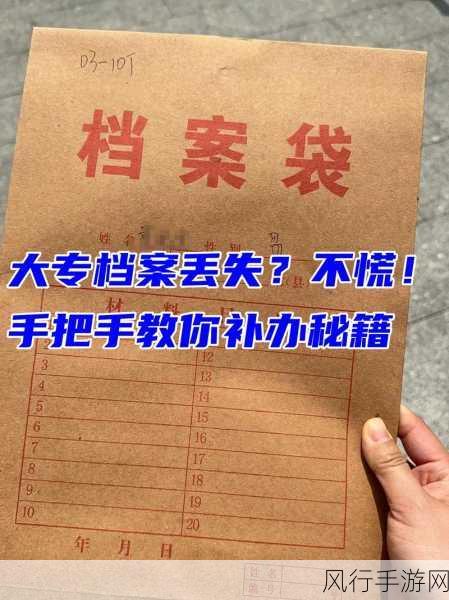 03-10T
档案袋
姓名 性别 男
县
大专档案丢失？不慌！
手把手教你补办秘籍
材料
12
3 13
4 14
5 15
6 16
7 17
8 18
9 19
10 20
年 月 日
姓名
编号
风行手游网